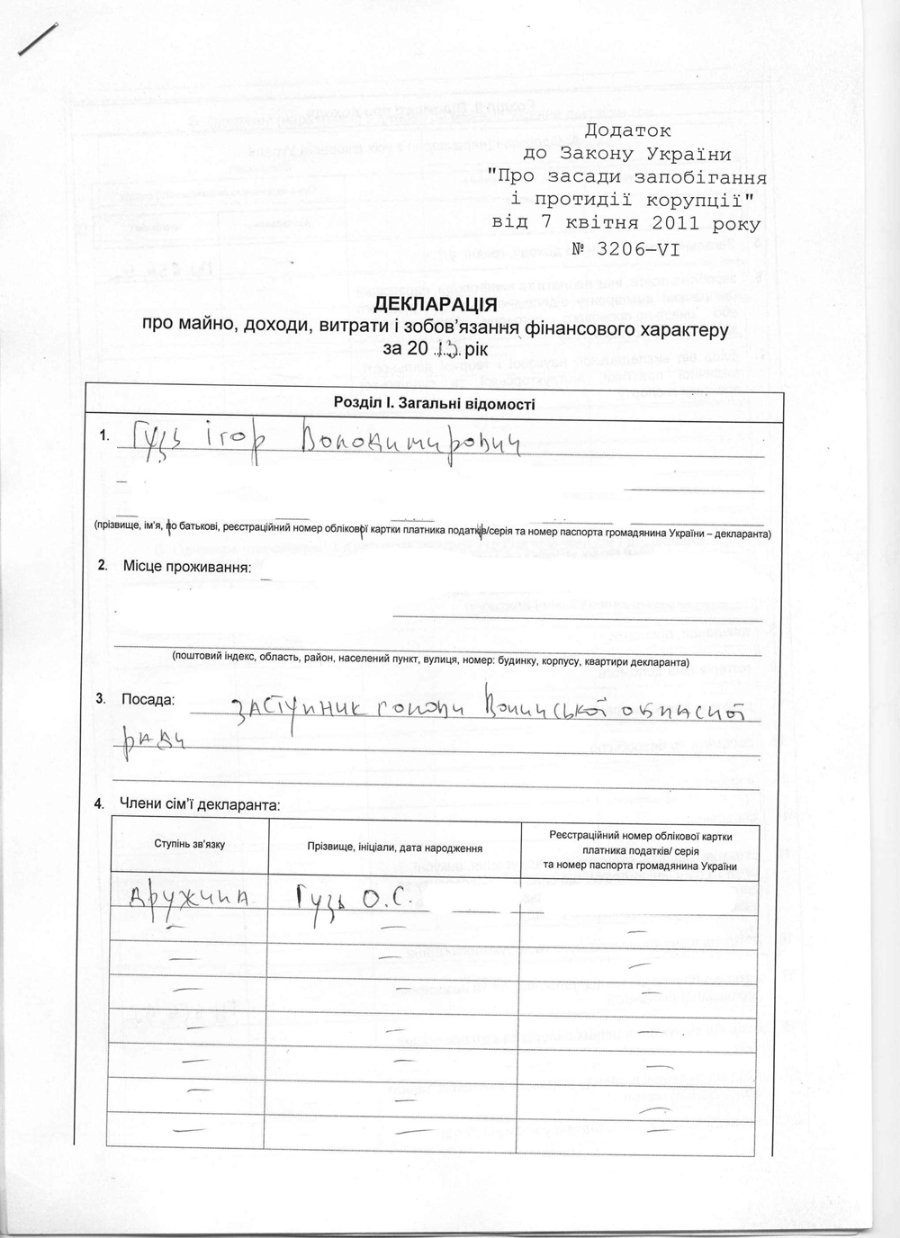 Додаток
до Закону України
"Про засади запобігання
і протидії корупції"
від 7 квітня 2011 року
№ 3206–VI
ДЕКЛАРАЦІЯ
про майно, доходи, витрати і зобов'язання фінансового характеру
за 2013 рік
Розділ I. Загальні відомості
1. Гузь Ігор Володимирович
(прізвище, ім'я, по батькові, реєстраційний номер облікової картки платника податків/серія та номер паспорта громадянина України – декларанта)
2. Місце проживання:
(поштовий індекс, область, район, населений пункт, вулиця, номер: будинку, корпусу, квартири декларанта)
3. Посада: заступник голови Волинської обласної
ради
4. Члени сім'ї декларанта:
Ступінь зв'язку
Прізвище, ініціали, дата народження
Реєстраційний номер облікової картки
платника податків/ серія
та номер паспорта громадянина України
дружина Гузь О.С.